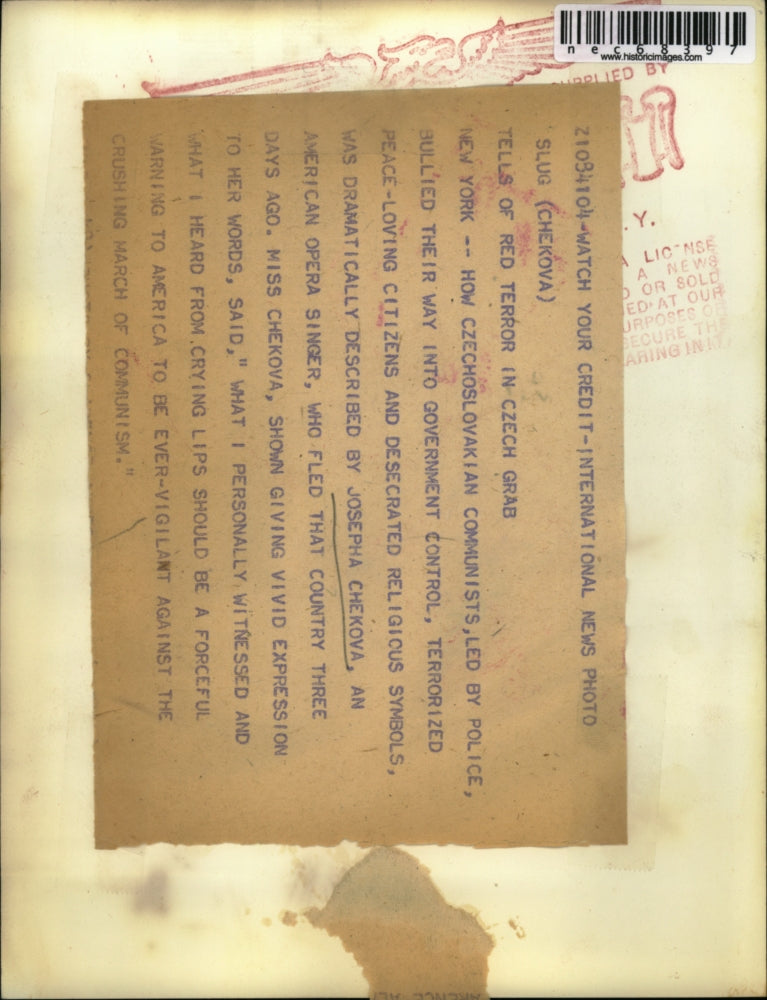 nec68397
www.historicimages.com
SUPPLIED BY
Z1084104-WATCH YOUR CREDIT-INTERNATIONAL NEWS PHOTO
SLUG (CHEKOVA)
TELLS OF RED TERROR IN CZECH GRAB
NEW YORK -- HOW CZECHOSLOVAKIAN COMMUNISTS,LED BY POLICE,
BULLIED THEIR WAY INTO GOVERNMENT CONTROL, TERRORIZED
PEACE-LOVING CITIZENS AND DESECRATED RELIGIOUS SYMBOLS,
WAS DRAMATICALLY DESCRIBED BY JOSEPHA CHEKOVA, AN
AMERICAN OPERA SINGER, WHO FLED THAT COUNTRY THREE
DAYS AGO. MISS CHEKOVA, SHOWN GIVING VIVID EXPRESSION
TO HER WORDS, SAID," WHAT I PERSONALLY WITNESSED AND
WHAT I HEARD FROM CRYING LIPS SHOULD BE A FORCEFUL
WARNING TO AMERICA TO BE EVER-VIGILANT AGAINST THE
CRUSHING MARCH OF COMMUNISM."
.Y.
A LICENSE
A NEWS
OR SOLD
ED AT OUR
URPOSES OF
SECURE THE
ARING IN IT